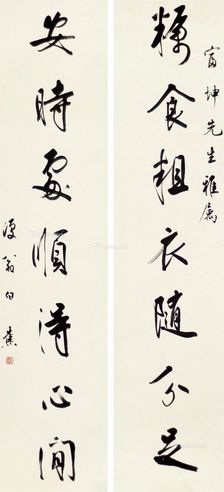 甯坤先生雅属
糲食粗衣随分足
安時處順得心闲
复翁白蕉